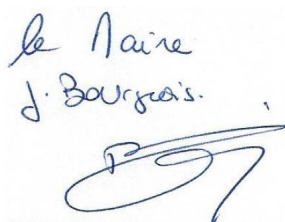 le Maire
J. Bourgeois.